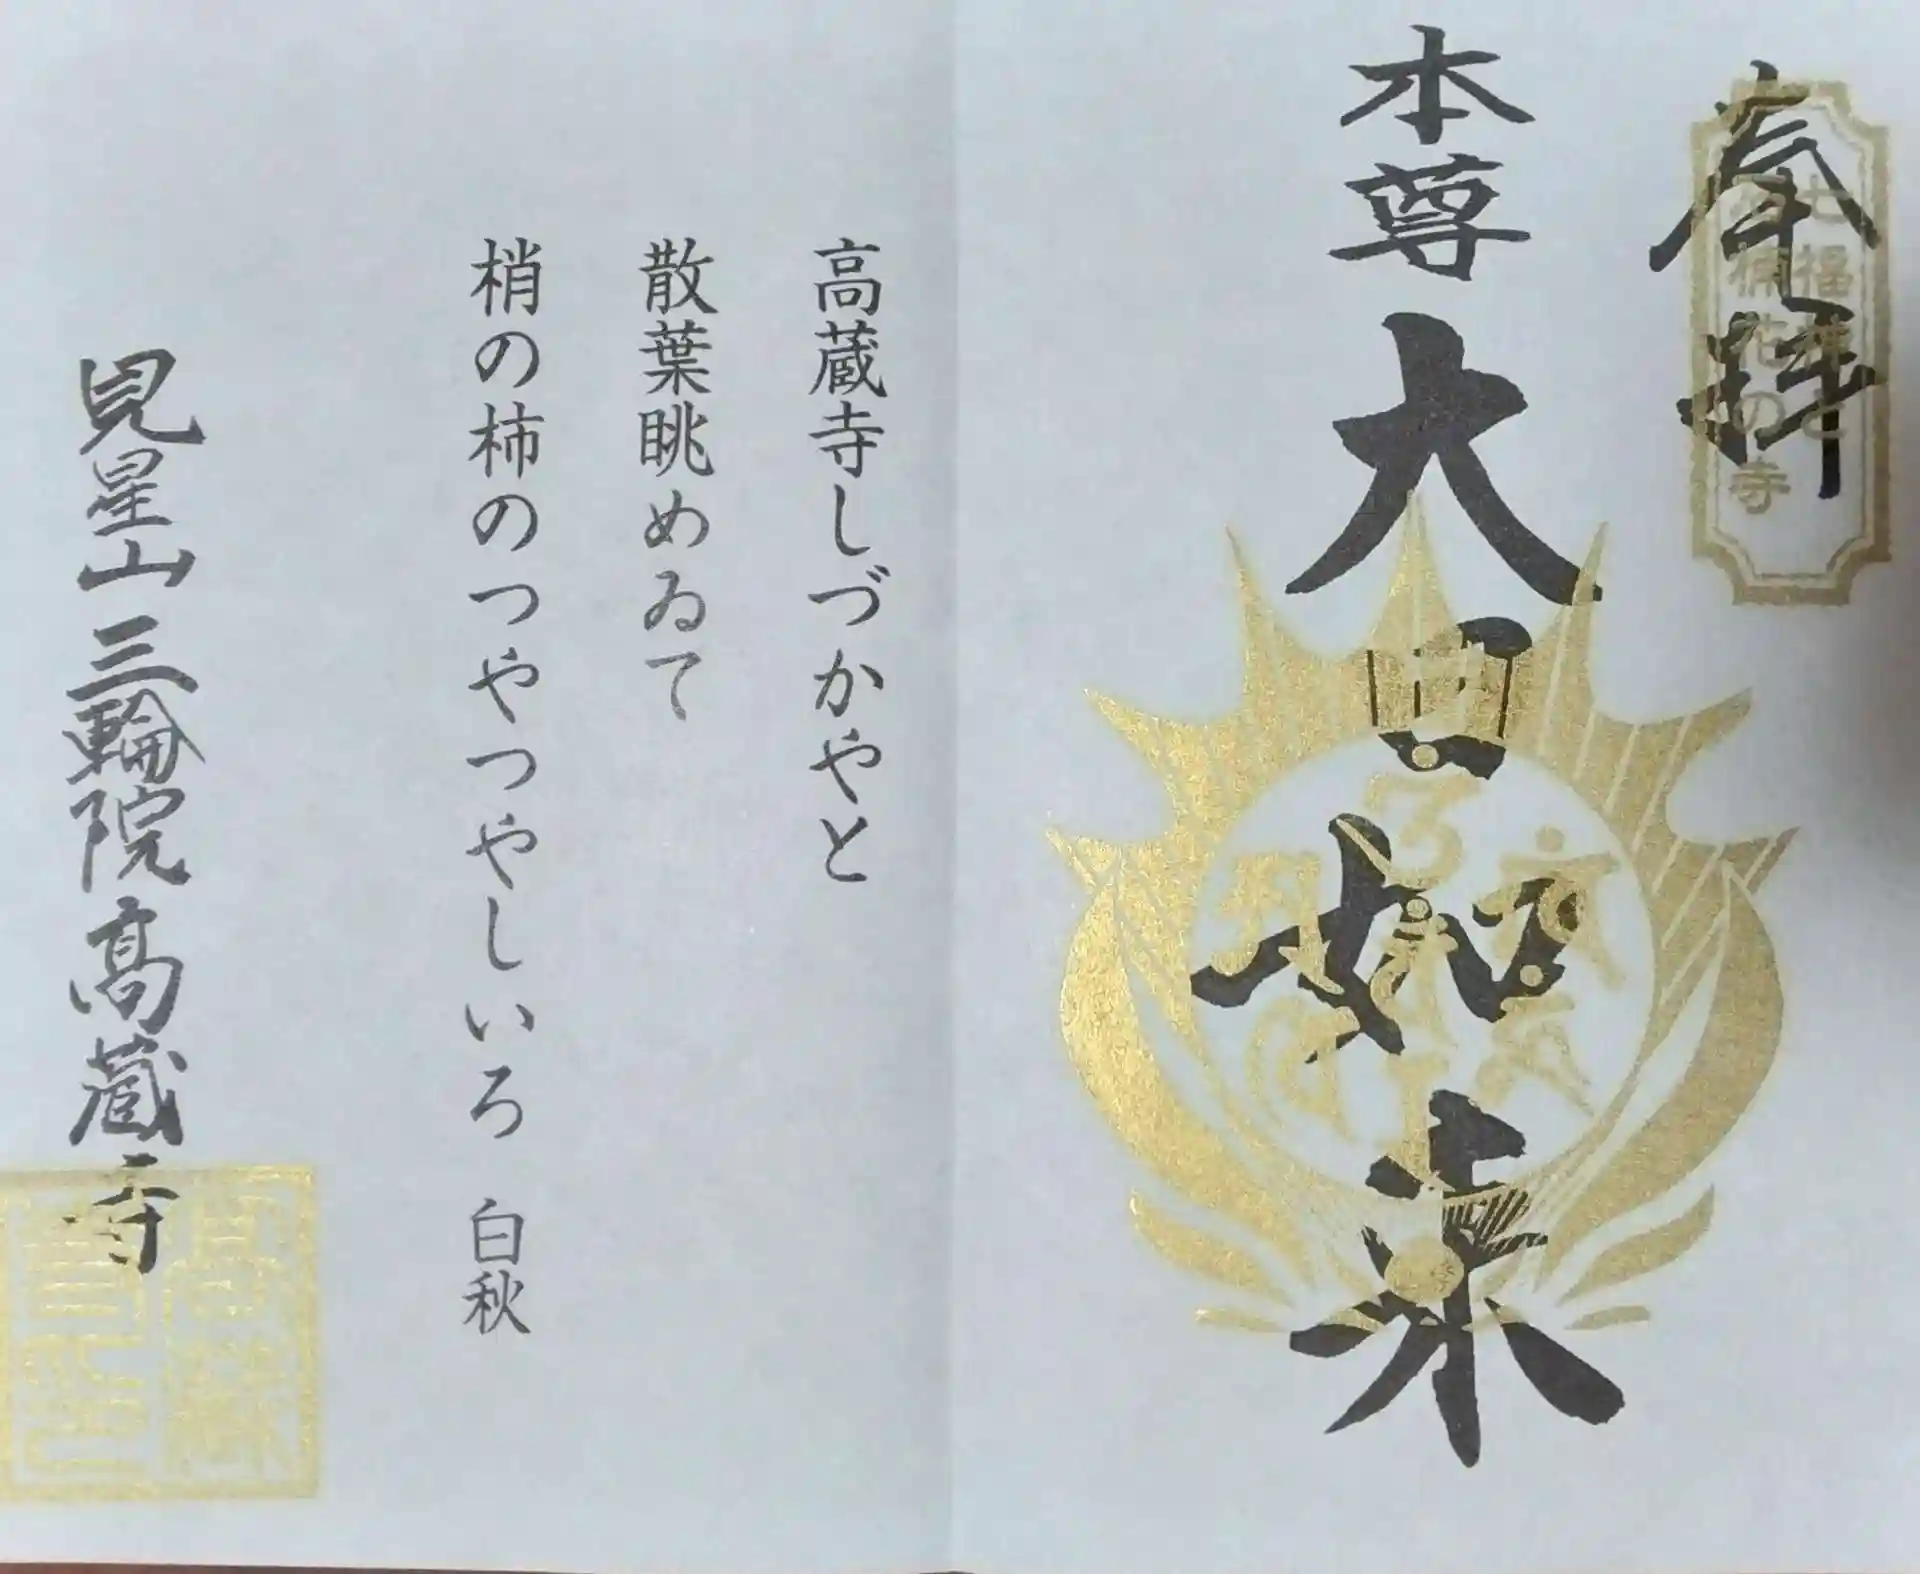 奉拝
七福神と
石楠花の寺
本尊 大日如来
高蔵寺しづかやと
散葉眺めゐて
梢の柿のつやつやしいろ 白秋
見星山三輪院高蔵寺